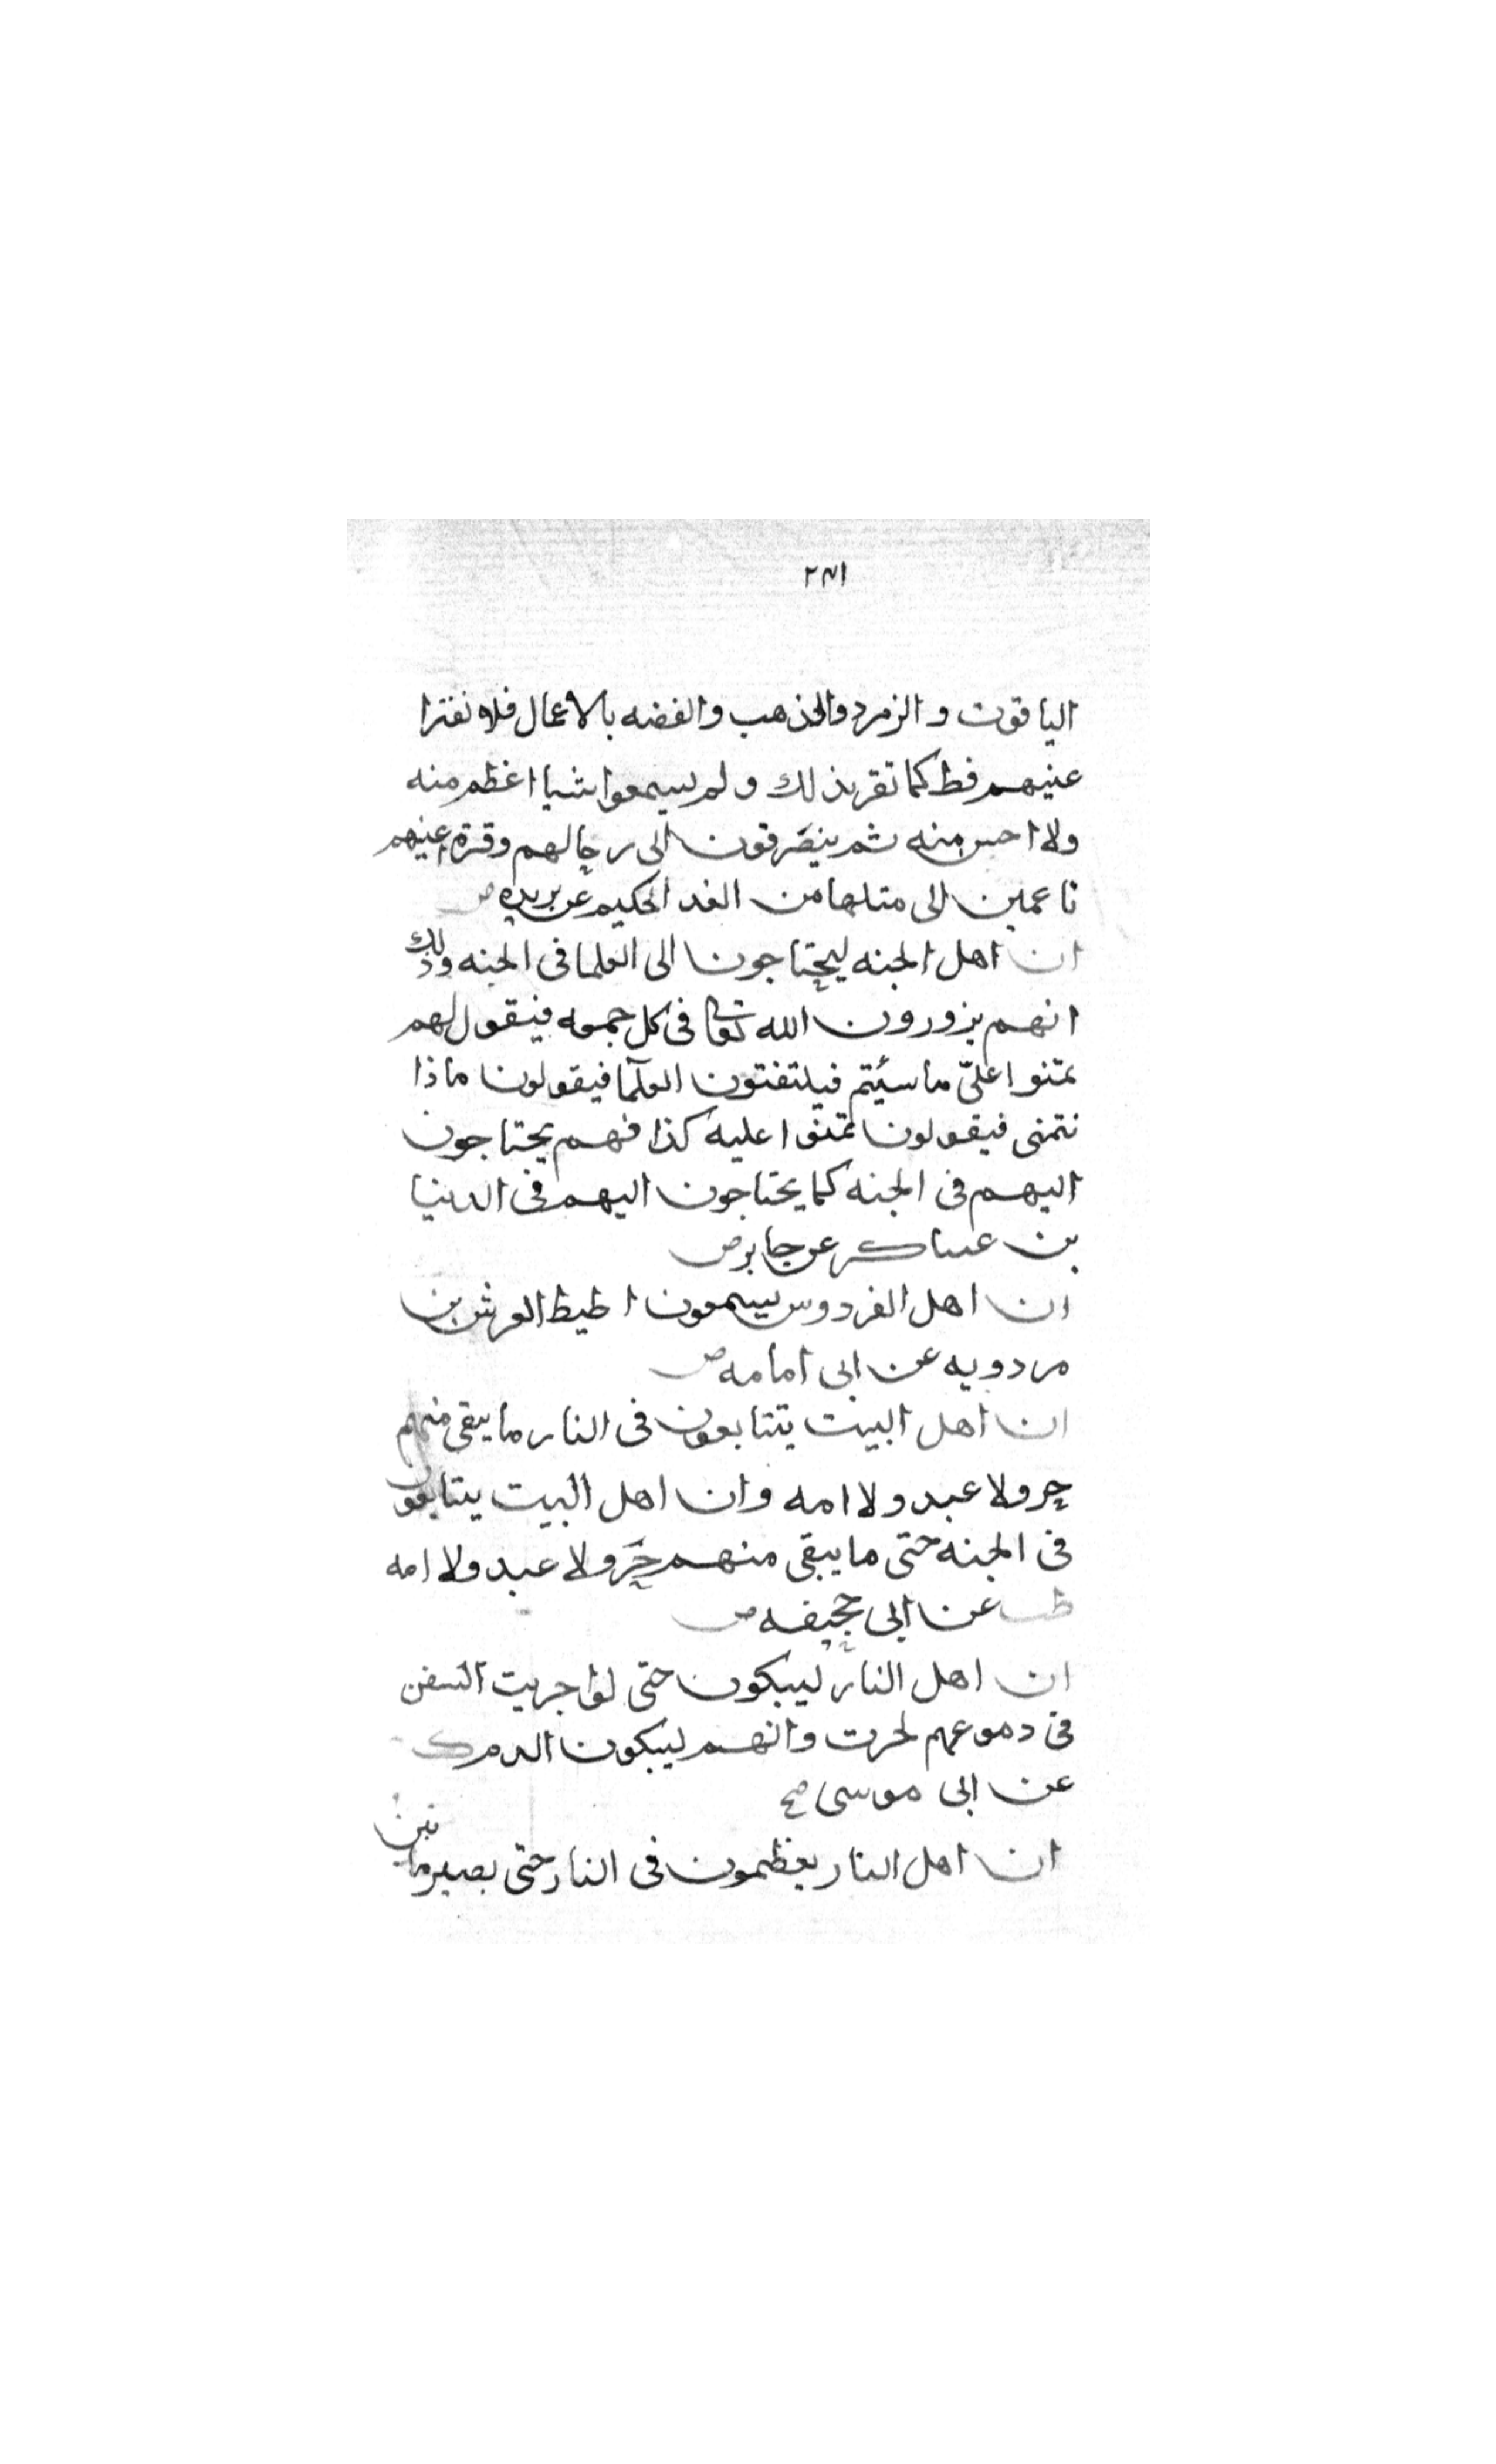 ٢٧١
الياقوت و الزمرد والذهب والفضه بالاعمال فلا نفترا
عنيهم قط كما تقر بذلك ولم يسمعوا شيا اعظم منه
ولا احسن منه ثم ينصرفون الى رحالهم وقرة اعينهم
ناعمين الى مثلها من الغد الحكيم عن بريده ض
ان اهل الجنه ليحتاجون الى العلما فى الجنه وذلك
انهم يزورون الله تعالى فى كل جمعه فيقول لهم
تمنوا علىّ ما سئيتم فيلتفتون العلمآ فيقولون ماذا
نتمنى فيقولون تمنوا عليه كذا فهم يحتاجون
اليهم فى الجنه كما يحتاجون اليهم فى الدنيا
بن عساكر عن جابر ض
ان اهل الفردوس يسمعون اطيط العرش بن
مردويه عن ابى امامه ض
ان اهل البيت يتتابعون فى النار ما يبقى منهم
حر ولا عبد ولا امه وان اهل البيت يتتابعون
فى الجنه حتى ما يبقى منهم حر ولا عبد ولا امه
طب عن ابى جحيفه ض
ان اهل النار ليبكون حتى لو اجريت السفن
فى دموعهم لجرت وانهم ليبكون الدم ك
عن ابى موسى صح
ان اهل النار يعظمون فى النار حتى يصير ما بين